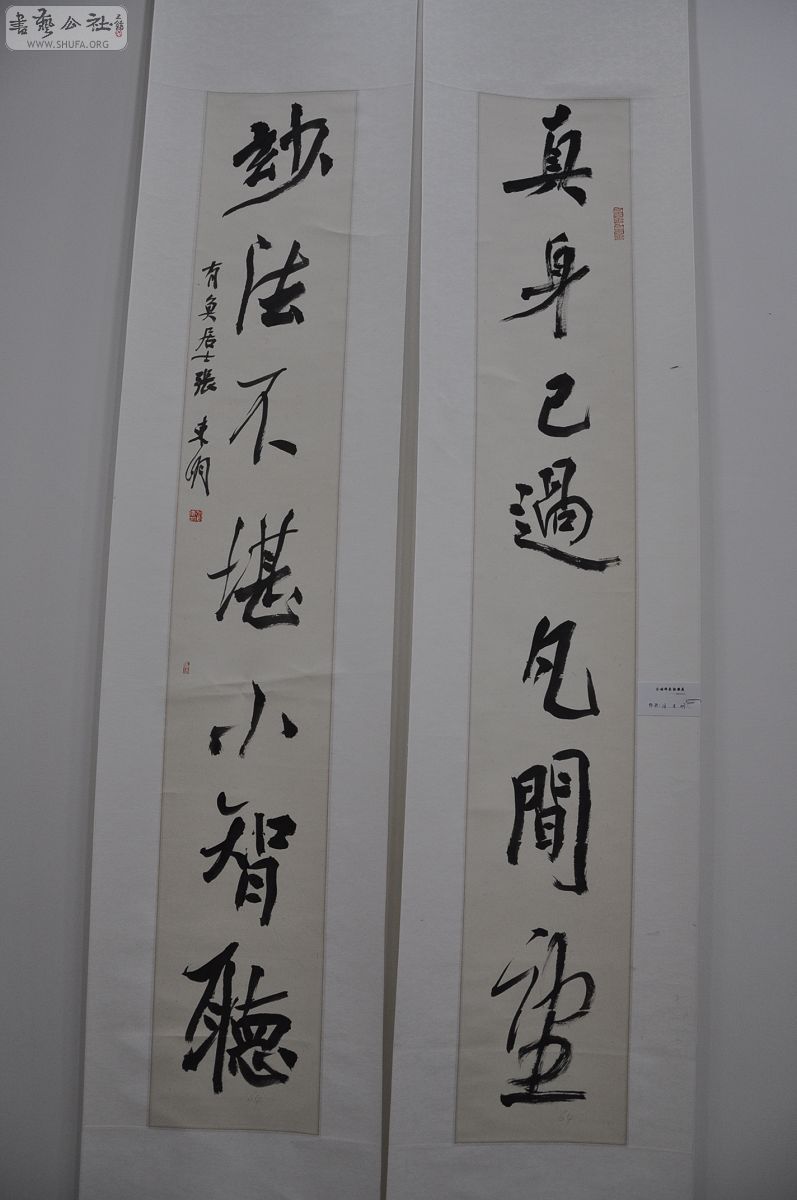 書藝公社
WWW.SHUFA.ORG
真身已過凡間望
玅法不堪小智聽
有居士張東明